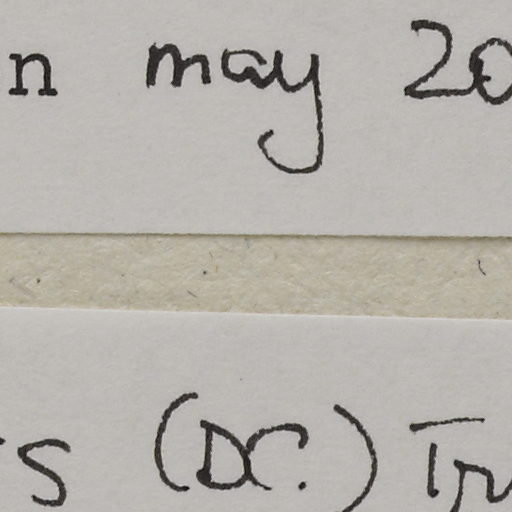 n may 20
s (DC.)